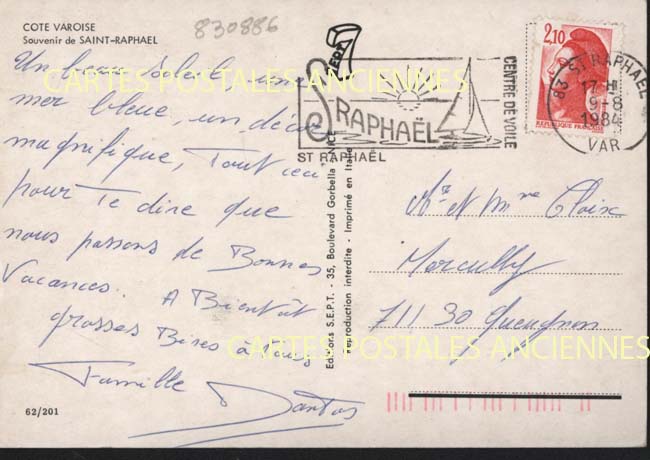 COTE VAROISE
Souvenir de SAINT-RAPHAEL
830886
Un beau soleil, une
mer bleue, un décor
magnifique, Tout ceci
pour Te dire que
nous passons de Bonnes
Vacances. A Bientôt
grosses Bises à Tous
Famille Dantas
62/201
SEPT
ST RAPHAËL
ST RAPHAËL
CENTRE DE VOILE
2,10
REPUBLIQUE FRANÇAISE
83 ST RAPHAEL
17 H
9-8
1984
VAR
Editions S.E.P.T. - 35, Boulevard Gorbella - NICE
Reproduction interdite - Imprimé en Italie
Mr et Mme Cloix
Marcully
71130 Gueugnon
CARTES POSTALES ANCIENNES
CARTES POSTALES ANCIENNES